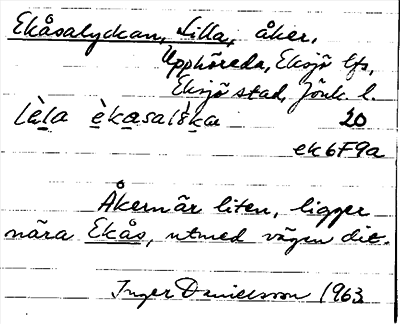 Ekåsalyckan, Lilla, åker,
Upphöreda, Eksjö lfs,
Eksjö stad, Jönk. l.
lèla èkasalỳka 20
ek6F9a
Åkern är liten, ligger
nära Ekås, utmed vägen dit.
Inger Danielsson 1963